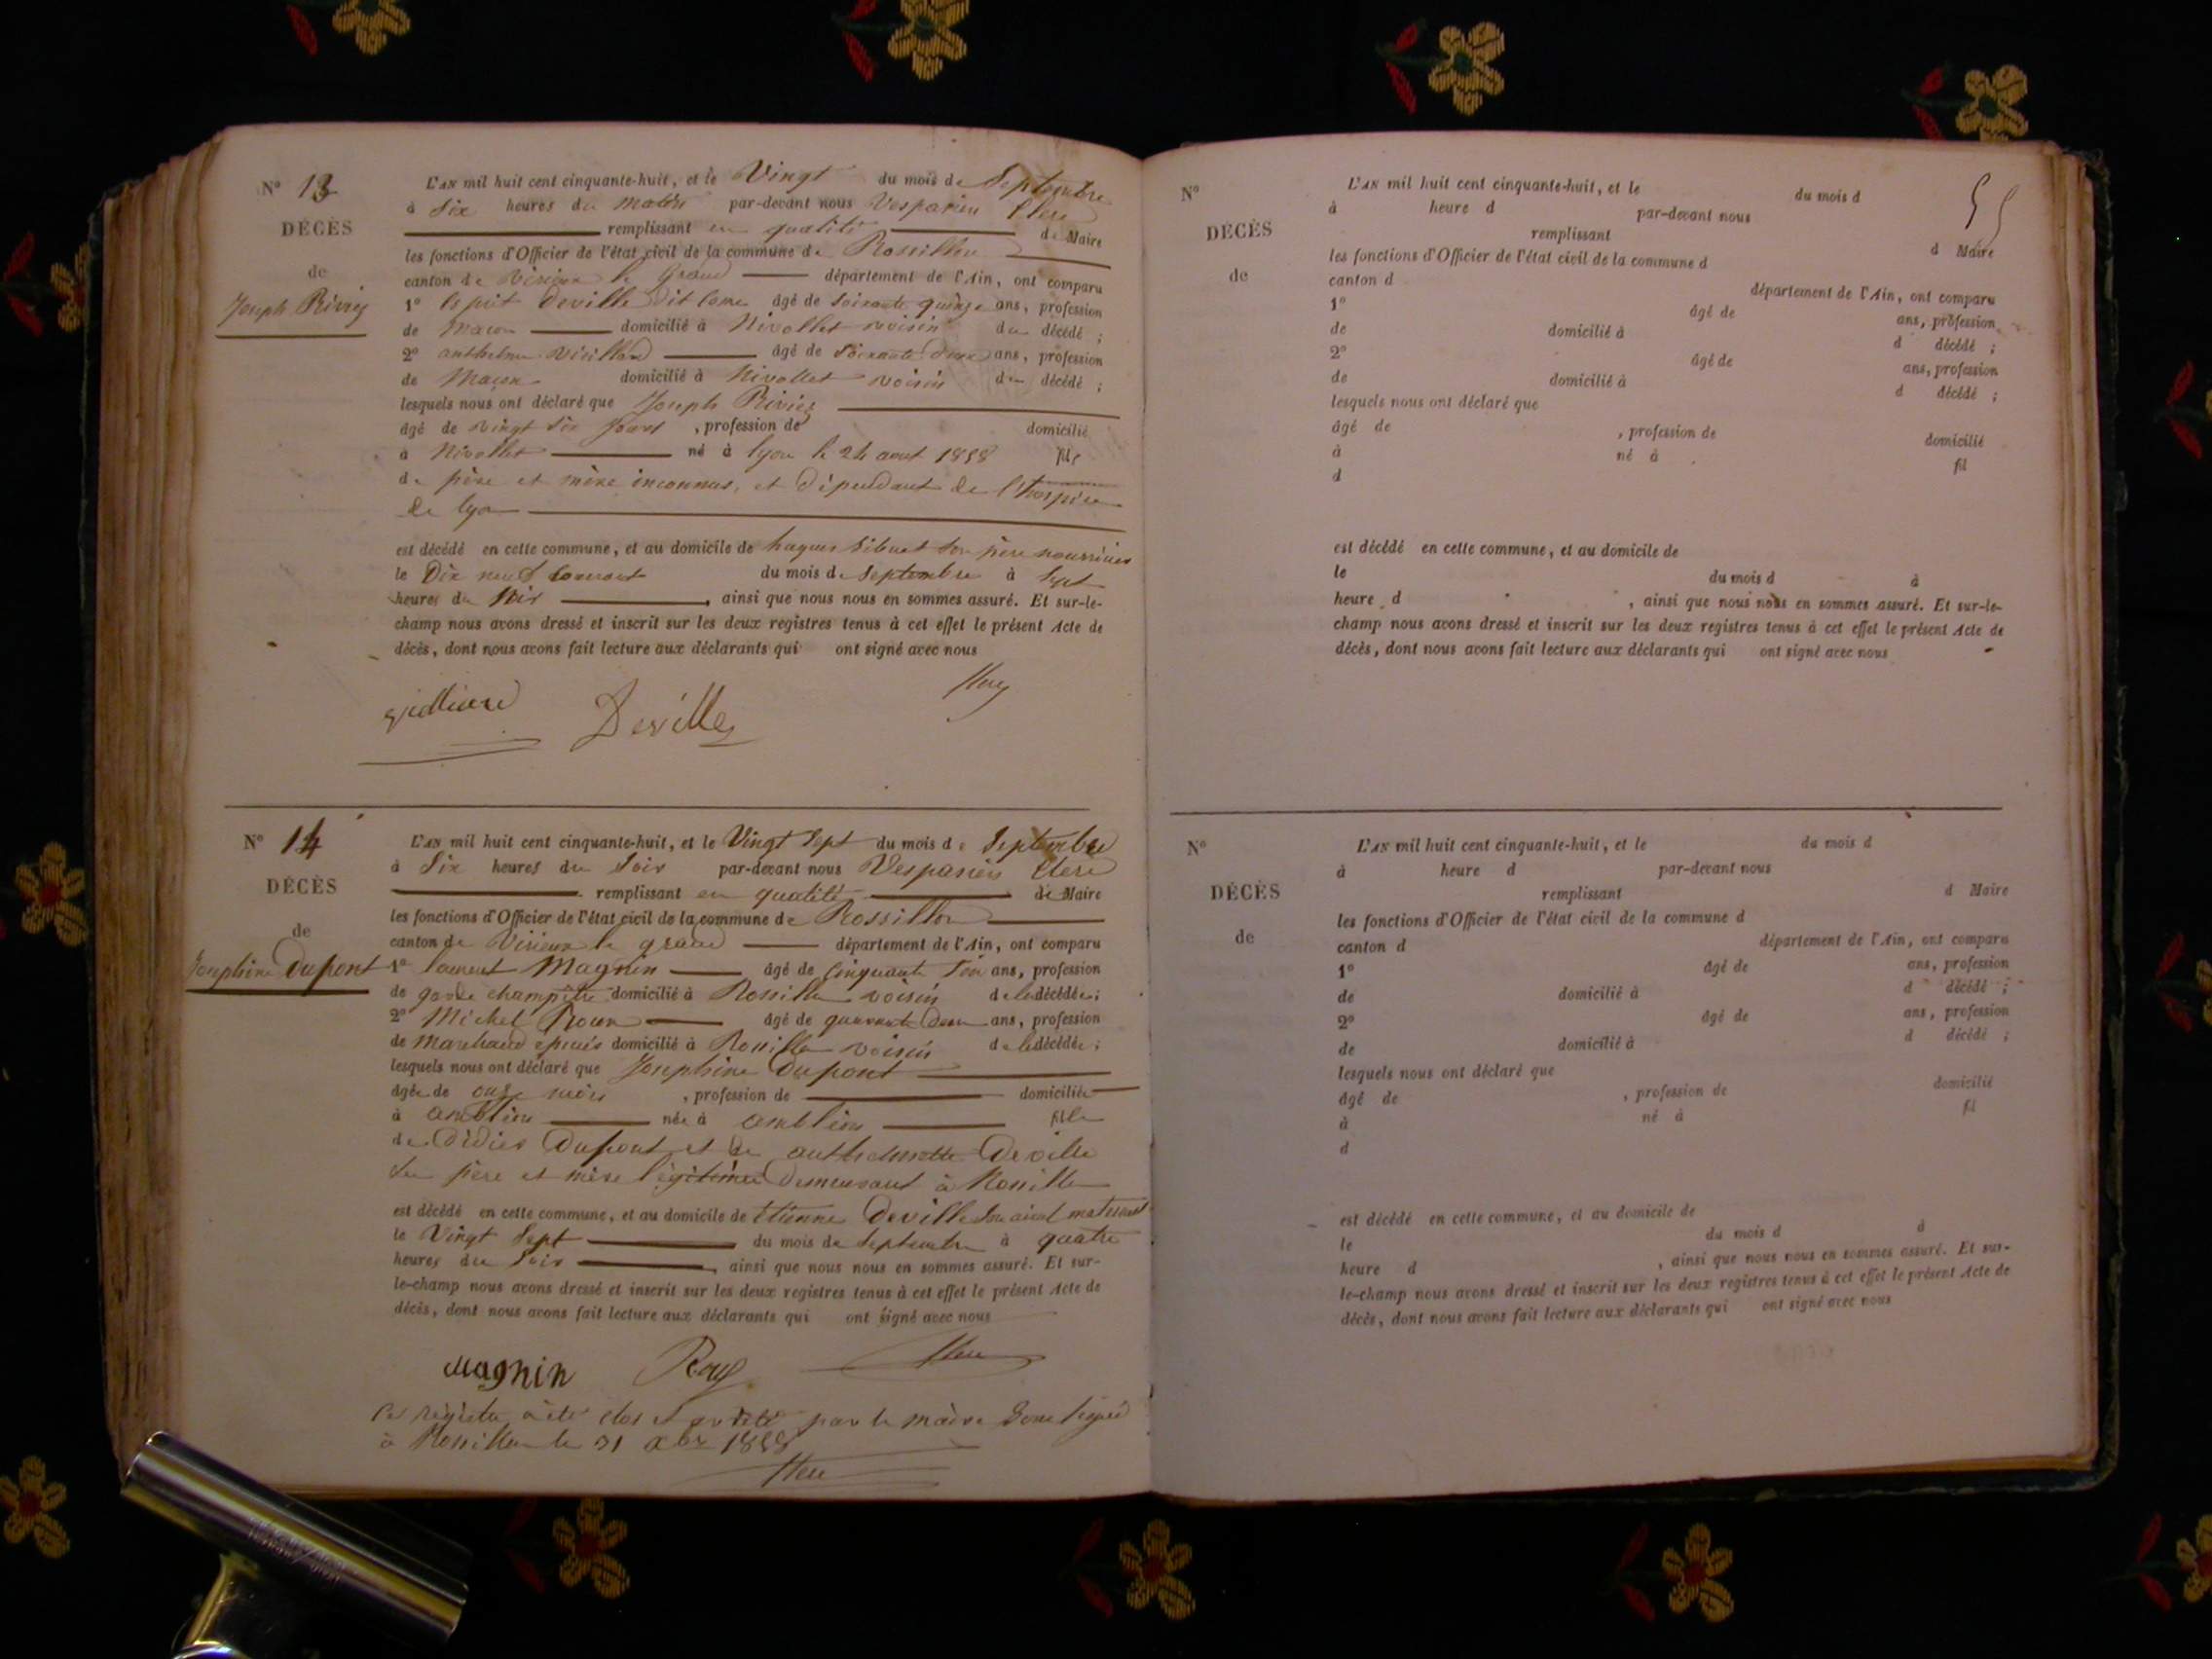 N° 13
DÉCÈS
de
Joseph Rivier
L'AN mil huit cent cinquante-huit, et le Vingt du mois de Septembre
à Six heures du matin par-devant nous Vespasien Clerc
remplissant en qualité de Maire
les fonctions d'Officier de l'état civil de la commune de Rossillon
canton de Virieux le grand département de l'Ain, ont comparu
1° Deville dit âgé de Soixante quinze ans, profession
de Maçon domicilié à Nivollet voisin du décédé ;
2° anthelme âgé de Soixante deux ans, profession
de Maçon domicilié à Nivollet voisin du décédé ;
lesquels nous ont déclaré que Joseph Rivier
âgé de vingt Six jours , profession de domicilié
à Nivollet né à lyon le 24 aout 1858 fils
de père et mère inconnus, et dépendant de l'hospice
de lyon
est décédé en cette commune, et au domicile de hugues Sibuet Son père nourricier
le Dix neuf Courant du mois de Septembre à Sept
heures du Soir , ainsi que nous nous en sommes assuré. Et sur-le-
champ nous avons dressé et inscrit sur les deux registres tenus à cet effet le présent Acte de
décès, dont nous avons fait lecture aux déclarants qui ont signé avec nous
Deville Clerc
N° 14
DÉCÈS
de
Josephine Dupont
L'AN mil huit cent cinquante-huit, et le Vingt Sept du mois de Septembre
à Six heures du Soir par-devant nous Vespasien Clerc
remplissant en qualité de Maire
les fonctions d'Officier de l'état civil de la commune de Rossillon
canton de Virieux le grand département de l'Ain, ont comparu
1° laurent Magnin âgé de Cinquante ans, profession
de garde champêtre domicilié à Rossillon voisin de la décédée ;
2° Michel Roux âgé de quarante deux ans, profession
de Marchand epicier domicilié à Rossillon voisin de la décédée ;
lesquels nous ont déclaré que Josephine Dupont
âgée de onze mois , profession de domiciliée
à ambléon née à ambléon fille
de Didier Dupont et de anthelmette Deville
Ses père et mère légitimes Demeurant à Rossillon
est décédé en cette commune, et au domicile de Etienne Deville Son aieul maternel
le Vingt Sept du mois de Septembre à quatre
heures du Soir , ainsi que nous nous en sommes assuré. Et sur-
le-champ nous avons dressé et inscrit sur les deux registres tenus à cet effet le présent Acte de
décès, dont nous avons fait lecture aux déclarants qui ont signé avec nous
Magnin Roux Clerc
Ce registre a été clos et arrêté par le maire Soussigné
à Rossillon le 31 Xbre 1858
Clerc
55
N°
DÉCÈS
de
L'AN mil huit cent cinquante-huit, et le du mois d
à heure d par-devant nous
remplissant d Maire
les fonctions d'Officier de l'état civil de la commune d
canton d département de l'Ain, ont comparu
1° âgé de ans, profession
de domicilié à d décédé ;
2° âgé de ans, profession
de domicilié à d décédé ;
lesquels nous ont déclaré que
âgé de , profession de domicilié
à né à fil
d
est décédé en cette commune, et au domicile de
le du mois d à
heure d , ainsi que nous nous en sommes assuré. Et sur-le-
champ nous avons dressé et inscrit sur les deux registres tenus à cet effet le présent Acte de
décès, dont nous avons fait lecture aux déclarants qui ont signé avec nous
N°
DÉCÈS
de
L'AN mil huit cent cinquante-huit, et le du mois d
à heure d par-devant nous
remplissant d Maire
les fonctions d'Officier de l'état civil de la commune d
canton d département de l'Ain, ont comparu
1° âgé de ans, profession
de domicilié à d décédé ;
2° âgé de ans, profession
de domicilié à d décédé ;
lesquels nous ont déclaré que
âgé de , profession de domicilié
à né à fil
d
est décédé en cette commune, et au domicile de
le du mois d à
heure d , ainsi que nous nous en sommes assuré. Et sur-
le-champ nous avons dressé et inscrit sur les deux registres tenus à cet effet le présent Acte de
décès, dont nous avons fait lecture aux déclarants qui ont signé avec nous